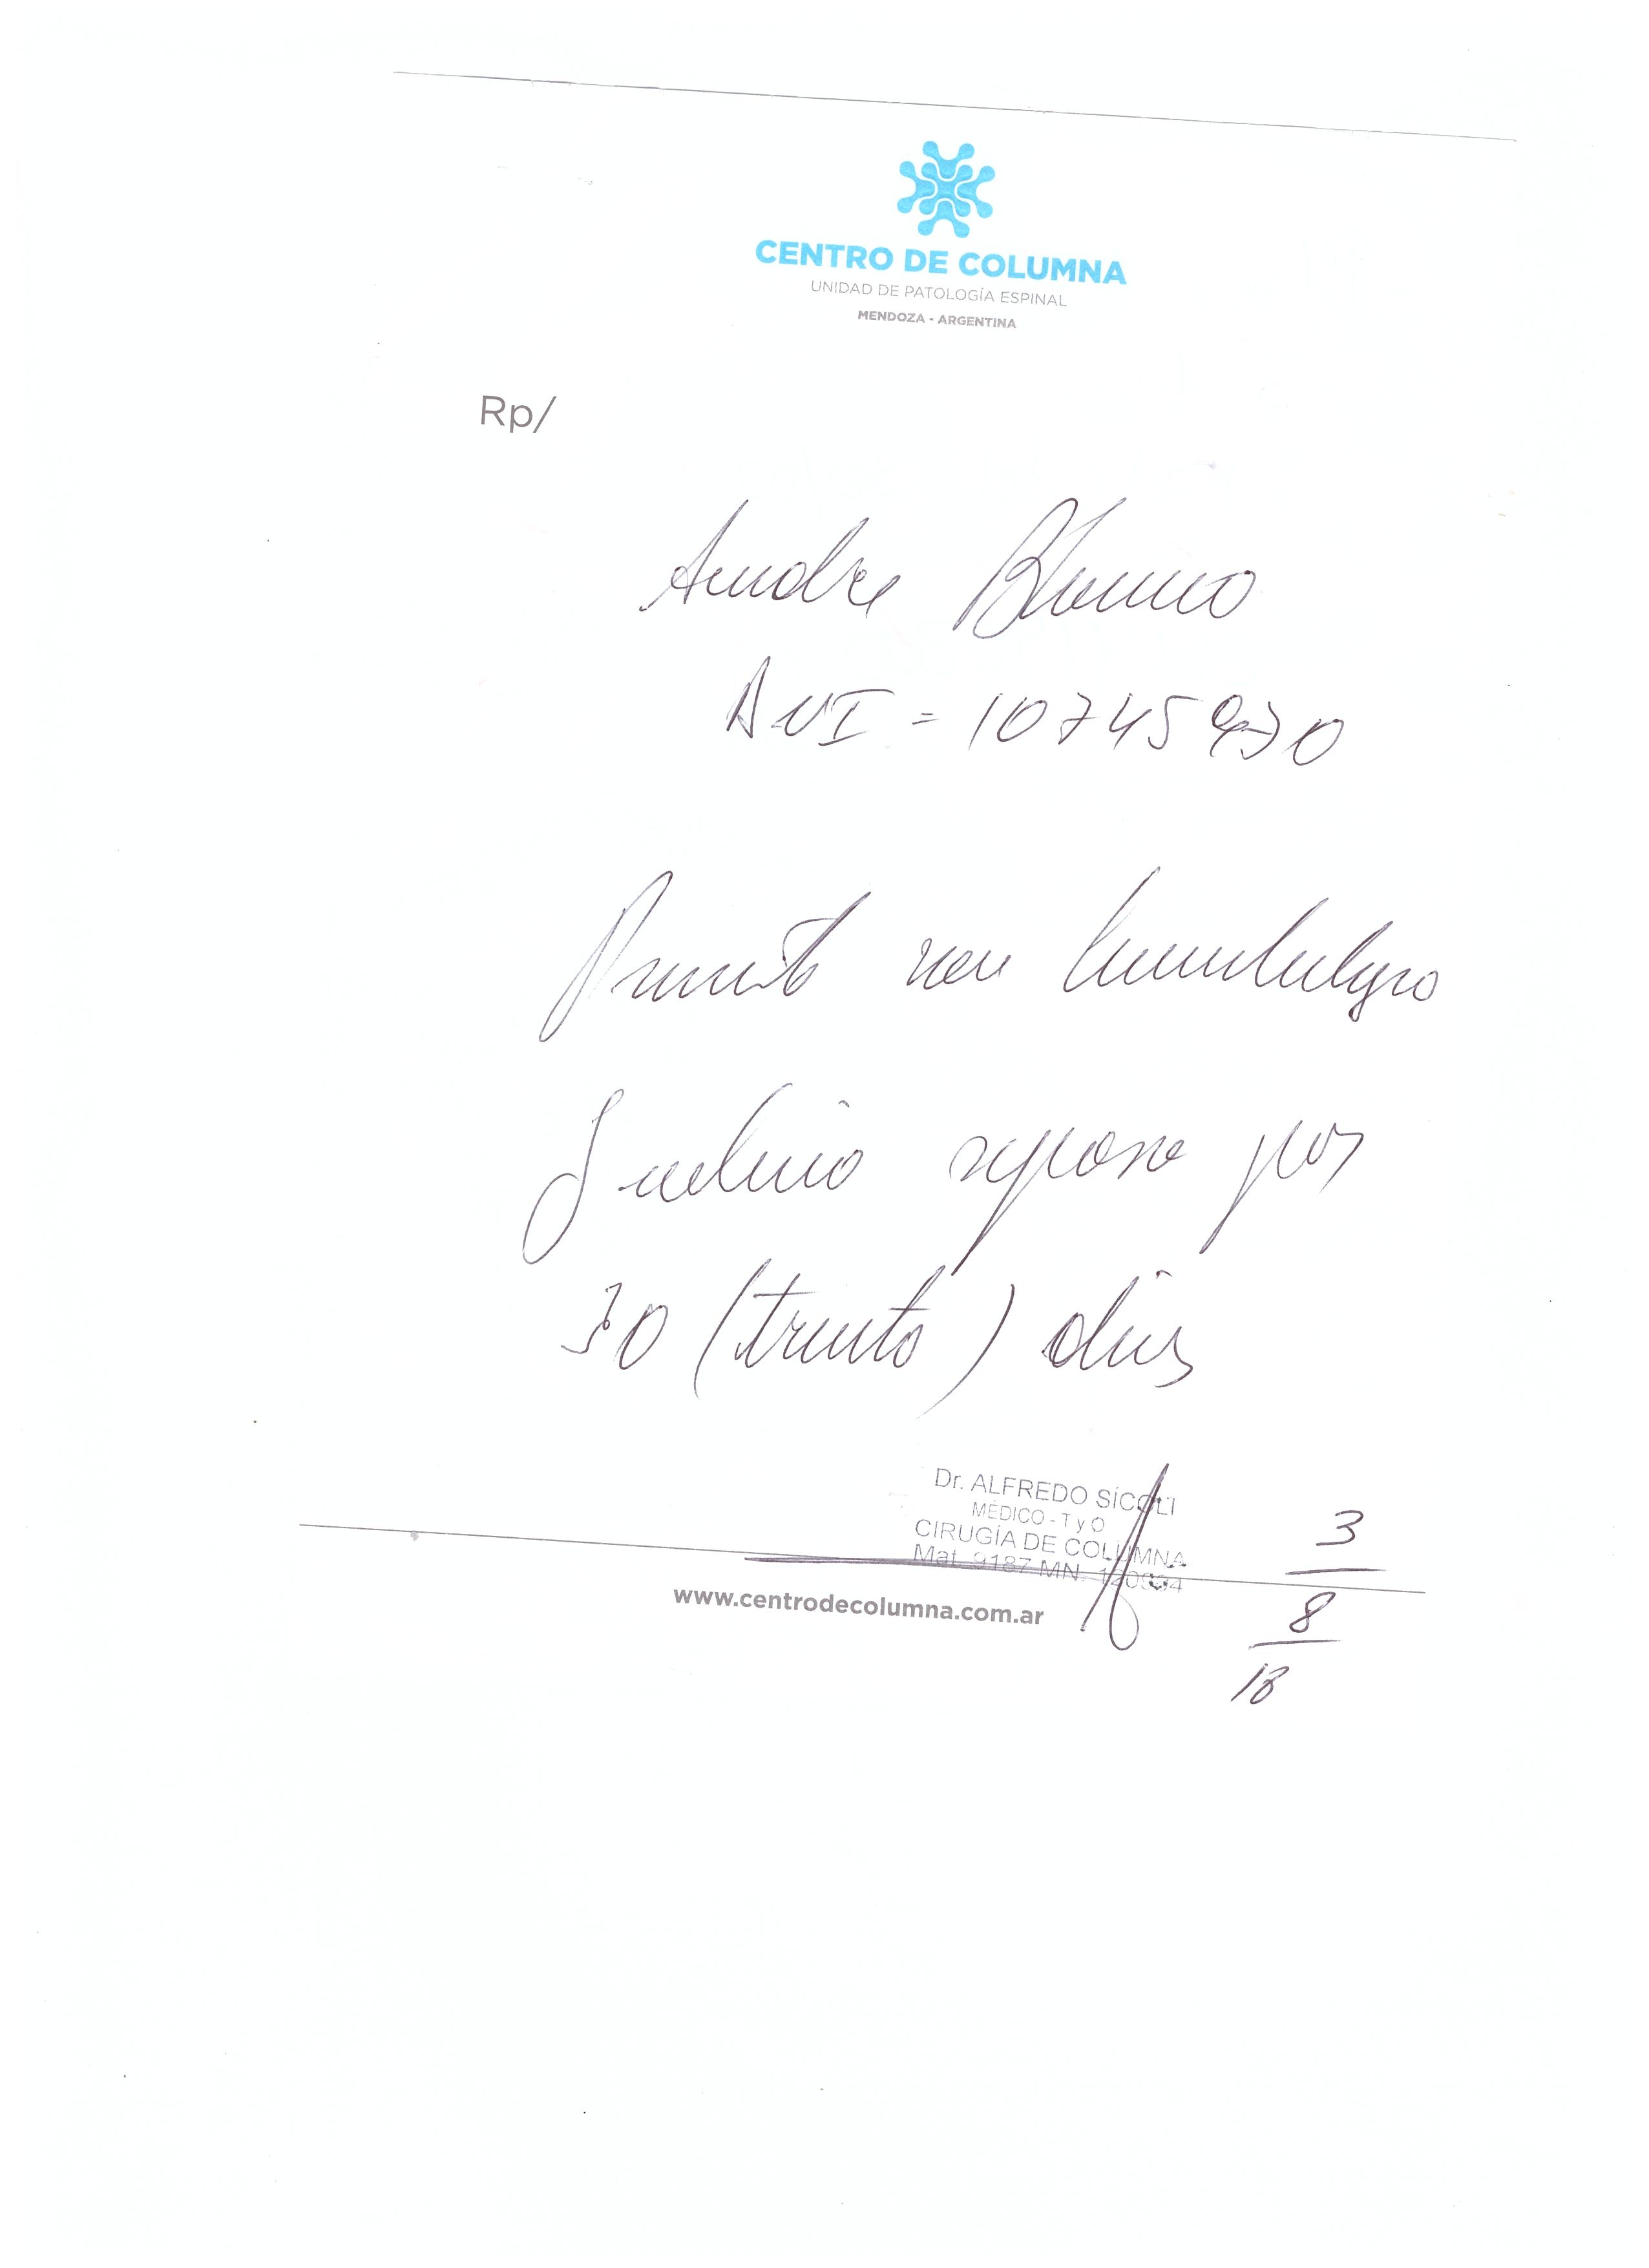 CENTRO DE COLUMNA
UNIDAD DE PATOLOGÍA ESPINAL
MENDOZA - ARGENTINA
Rp/
Blanco
DNI = 10745970
lumbalgia
Indico reposo por
30 (treinta) días
Dr. ALFREDO SÍCOLI
MÉDICO - T y O
CIRUGÍA DE COLUMNA
Mat. 9187 MN.
3
8
18
www.centrodecolumna.com.ar